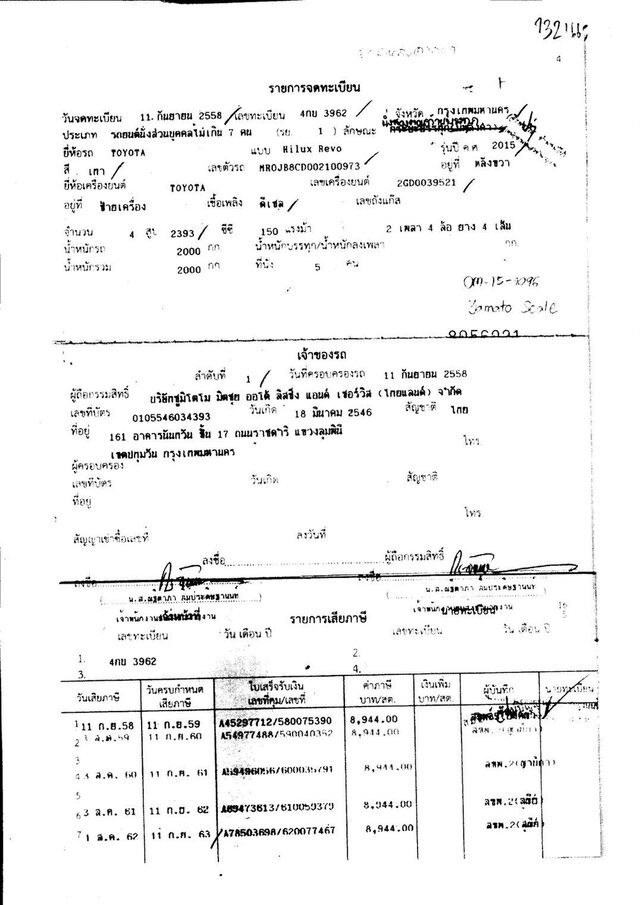 4
รายการจดทะเบียน
วันจดทะเบียน 11 กันยายน 2558 เลขทะเบียน 4กย 3962 จังหวัด กรุงเทพมหานคร
ประเภท รถยนต์นั่งส่วนบุคคลไม่เกิน 7 คน (รย. 1) ลักษณะ
ยี่ห้อรถ TOYOTA แบบ Hilux Revo รุ่นปี ค.ศ 2015
สี เทา เลขตัวรถ MR0JB8CD002100973 อยู่ที่ หลังขวา
ยี่ห้อเครื่องยนต์ TOYOTA เลขเครื่องยนต์ 2GD0039521
อยู่ที่ ซ้ายเครื่อง เชื้อเพลิง ดีเซล เลขถังแก๊ส
จำนวน 4 สูบ 2393 ซีซี 150 แรงม้า 2 เพลา 4 ล้อ ยาง 4 เส้น
น้ำหนักรถ 2000 กก น้ำหนักบรรทุก/น้ำหนักลงเพลา กก
น้ำหนักรวม 2000 กก ที่นั่ง 5 คน
OM-15-1096
Yamato Scale
เจ้าของรถ
ลำดับที่ 1 วันที่ครอบครองรถ 11 กันยายน 2558
ผู้ถือกรรมสิทธิ์ บริษัทซูมิโตโม มิตซุย ออโต้ ลิสซิ่ง แอนด์ เซอร์วิส (ไทยแลนด์) จำกัด
เลขที่บัตร 0105546034393 วันเกิด 18 มีนาคม 2546 สัญชาติ ไทย
ที่อยู่ 161 อาคารนันทวัน ชั้น 17 ถนนราชดำริ แขวงลุมพินี
โทร
เขตปทุมวัน กรุงเทพมหานคร
ผู้ครอบครอง
เลขที่บัตร วันเกิด สัญชาติ
ที่อยู่
โทร
สัญญาเช่าซื้อเลขที่ ลงวันที่
ลงชื่อ ผู้ถือกรรมสิทธิ์
ลงชื่อ
รายการเสียภาษี
เลขทะเบียน วัน เดือน ปี เลขทะเบียน วัน เดือน ปี
1. 4กย 3962 2.
3. 4.
วันเสียภาษี วันครบกำหนดเสียภาษี ใบเสร็จรับเงิน เล่มที่/เลขที่ ค่าภาษี บาท/สต. เงินเพิ่ม บาท/สต. ผู้บันทึก นายทะเบียน
1 11 ก.ย.58 11 ก.ย.59 A45297712/580075390 8,944.00
2 11 ก.ย.60 A54977488/590040352 8,944.00
3
4 3 ส.ค. 60 11 ก.ย. 61 A59496056/600035791 8,944.00
5
6 3 ส.ค. 61 11 ก.ย. 62 A69473613/610059379 8,944.00
7 1 ส.ค. 62 11 ก.ย. 63 A78503698/620077467 8,944.00